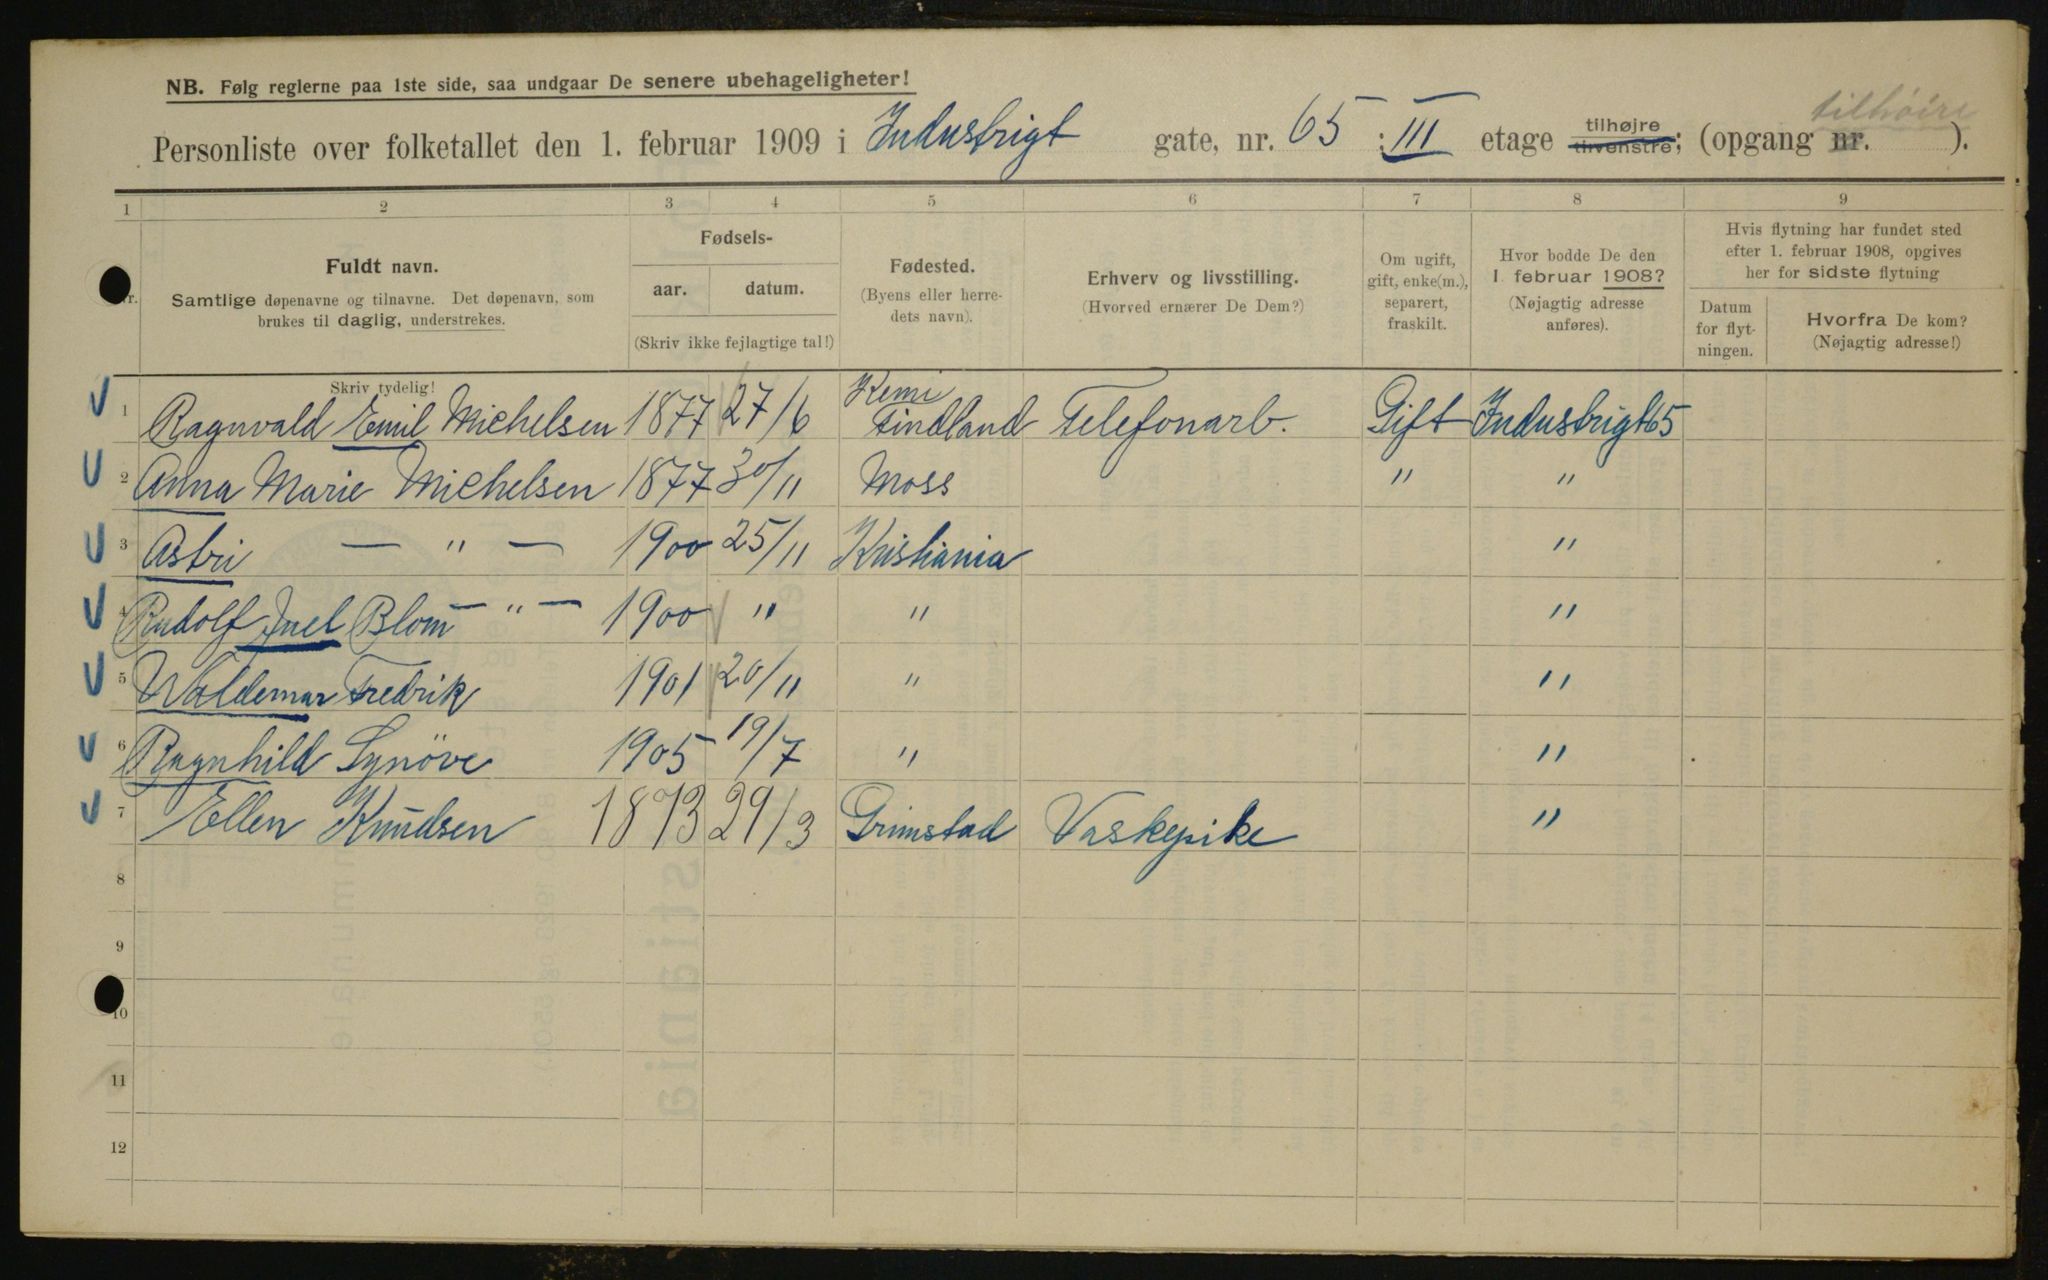 tilhöire
NB. Følg reglerne paa 1ste side, saa undgaar De senere ubehageligheter!
Personliste over folketallet den 1. februar 1909 i Industrigt gate, nr. 65 : III etage tilhøjre tilvenstre; (opgang nr. ).
1 2 3 4 5 6 7 8 9
Nr.
Fuldt navn.
Samtlige døpenavne og tilnavne. Det døpenavn, som
brukes til daglig, understrekes.
Skriv tydelig!
Fødsels-
aar. datum.
(Skriv ikke fejlagtige tal!)
Fødested.
(Byens eller herre-
dets navn).
Erhverv og livsstilling.
(Hvorved ernærer De Dem?)
Om ugift,
gift, enke(m.),
separert,
fraskilt.
Hvor bodde De den
1. februar 1908?
(Nøjagtig adresse
anføres).
Hvis flytning har fundet sted
efter 1. februar 1908, opgives
her for sidste flytning
Datum
for flyt-
ningen.
Hvorfra De kom?
(Nøjagtig adresse!)
1 Ragnvald Emil Michelsen 1877 27/6 Kemi Findland Telefonarb. Gift Industrigt 65
2 Anna Marie Michelsen 1877 30/11 Moss " "
3 Astri — " — 1900 25/11 Kristiania "
4 Rudolf Juel Blom — " — 1900 " " "
5 Waldemar Fredrik 1901 20/11 " "
6 Ragnhild Synöve 1905 19/7 " "
7 Ellen Knudsen 1873 29/3 Grimstad Vaskepike "
8
9
10
11
12